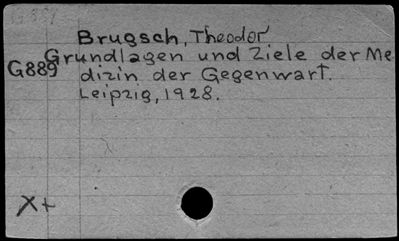 Brugsch, Theodor
Grundlagen und Ziele der Me
G889 dizin der Gegenwart.
Leipzig, 1928.
X+